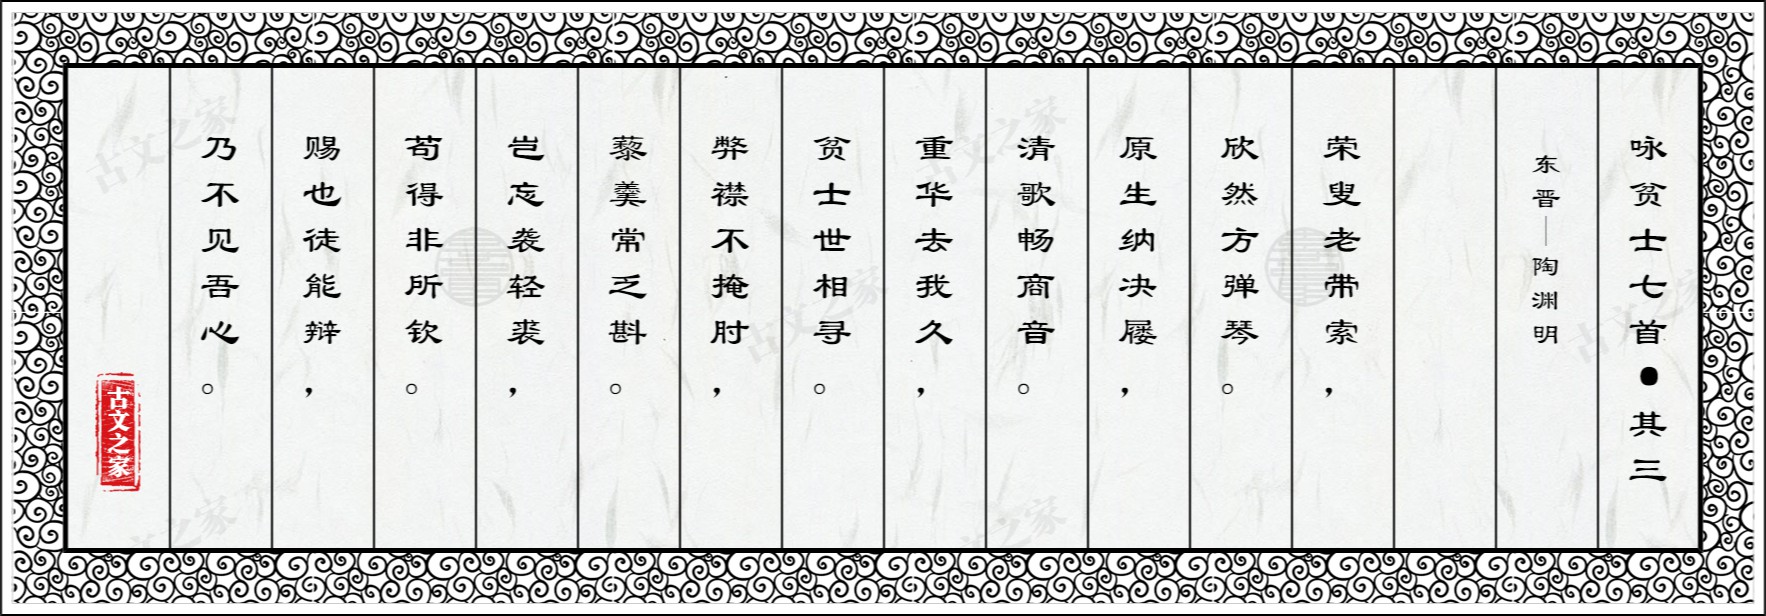 咏贫士七首●其三
东晋—陶渊明
荣叟老带索，
欣然方弹琴。
原生纳决屦，
清歌畅商音。
重华去我久，
贫士世相寻。
弊襟不掩肘，
藜羹常乏斟。
岂忘袭轻裘，
苟得非所钦。
赐也徒能辩，
乃不见吾心。
古文之家